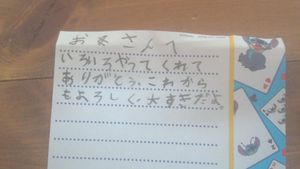 おかあさんへ
いろいろやってくれて
ありがとう。これから
もよろしく。大すきだよ。